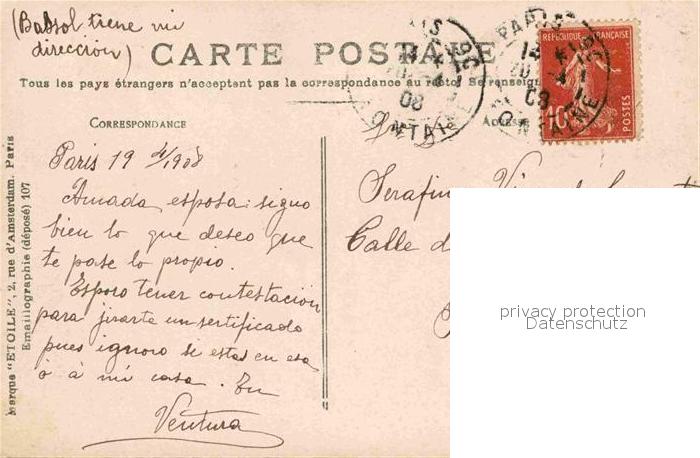 (Bassol tiene mi
direccion)
CARTE POSTALE
Tous les pays étrangers n'acceptent pas la correspondance au recto. Se renseign
CORRESPONDANCE
ADRESSE
Paris 19 4/1908
Amada esposa: siguo
bien lo que deseo que
te pase lo propio.
Espero tener contestación
para jirarte un sertificado
pues ignoro si estas en esa
ó á mi casa. Tu
Ventura
Serafin
Calle d
Marque "ETOILE", 2, rue d'Amsterdam. Paris
Emaillographie (déposé) 107
REPUBLIQUE FRANÇAISE
10
POSTES
PARIS
08
privacy protection
Datenschutz